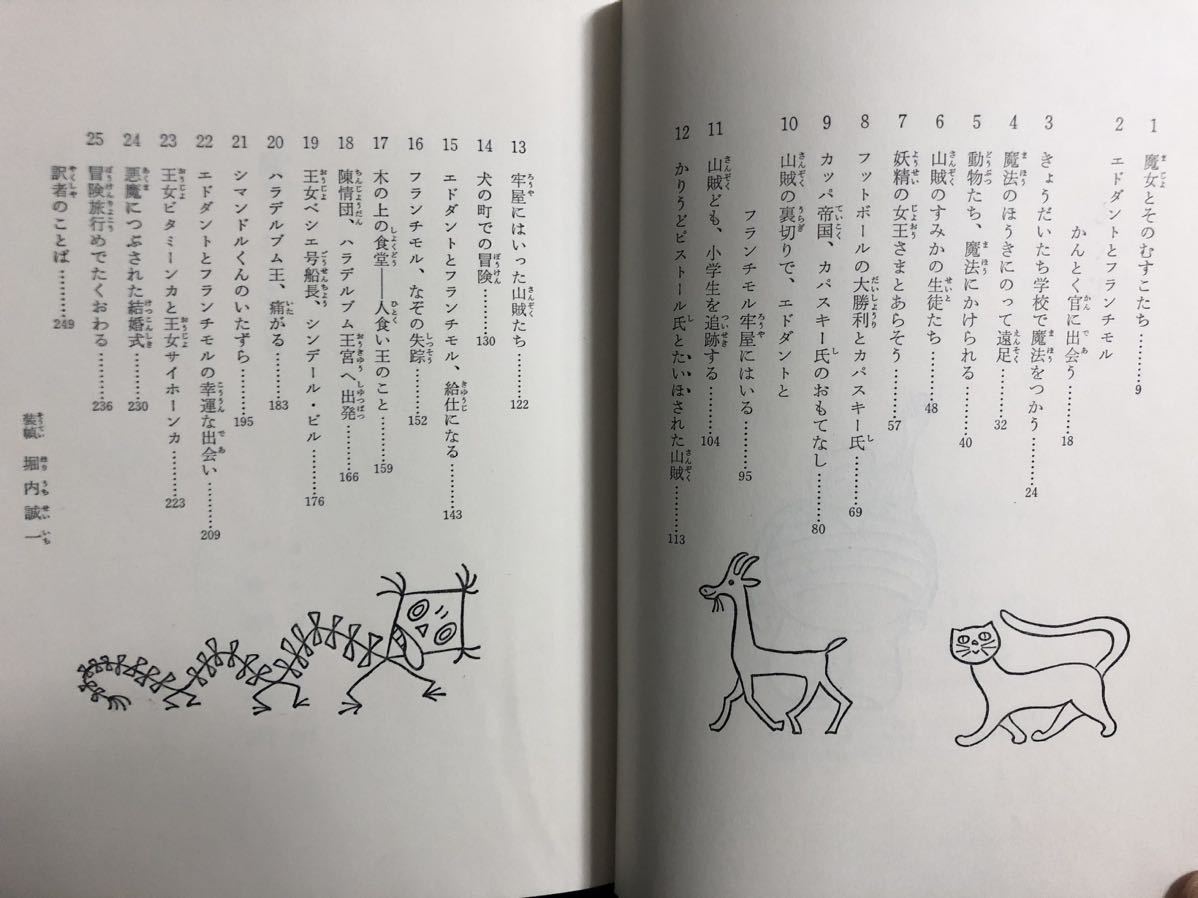 1 魔女とそのむすこたち………9
2 エドダントとフランチモル
かんとく官に出会う………18
3 きょうだいたち学校で魔法をつかう………24
4 魔法のほうきにのって遠足………32
5 動物たち、魔法にかけられる………40
6 山賊のすみかの生徒たち………48
7 妖精の女王さまとあらそう………57
8 フットボールの大勝利とカパスキー氏………69
9 カッパ帝国、カパスキー氏のおもてなし………80
10 山賊の裏切りで、エドダントと
フランチモル牢屋にはいる………95
11 山賊ども、小学生を追跡する………104
12 かりうどピストール氏とたいほされた山賊………113
13 牢屋にはいった山賊たち………122
14 犬の町での冒険………130
15 エドダントとフランチモル、給仕になる………143
16 フランチモル、なぞの失踪………152
17 木の上の食堂――人食い王のこと………159
18 陳情団、ハラデルブム王宮へ出発………166
19 王女ベシェ号船長、シンデール・ビル………176
20 ハラデルブム王、痛がる………183
21 シマンドルくんのいたずら………195
22 エドダントとフランチモルの幸運な出会い………209
23 王女ビタミーンカと王女サイホーンカ………223
24 悪魔につぶされた結婚式………230
25 冒険旅行めでたくおわる………236
訳者のことば………249
装幀 堀内誠一